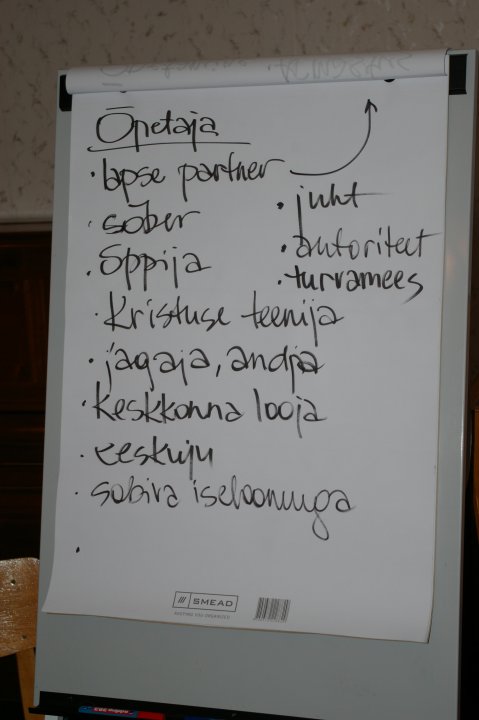 Õpetaja
• lapse partner
• sõber
• õppija
• Kristuse teenija
• jagaja, andja
• keskkonna looja
• eeskuju
• sobiva iseloomuga
•
• juht
• autoriteet
• turvamees
SMEAD